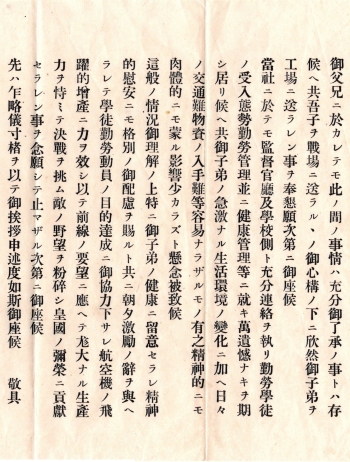 御父兄ニ於カレテモ此ノ間ノ事情ハ充分御了承ノ事トハ存
候ヘ共吾子ヲ戰場ニ送ラルヽノ御心構ノ下ニ欣然御子弟ヲ
工場ニ送ラレン事ヲ奉懇願次第ニ御座候
當社ニ於テモ監督官廳及學校側ト充分連絡ヲ執リ勤勞學徒
ノ受入態勢勤勞管理並ニ健康管理等ニ就キ萬遺憾ナキヲ期
シ居リ候ヘ共御子弟ノ急激ナル生活環境ノ變化ニ加ヘ日々
ノ交通難物資ノ入手難等容易ナラザルモノ有之精神的ニモ
肉體的ニモ蒙ル影響少カラズト懸念被致候
這般ノ情況御理解ノ上特ニ御子弟ノ健康ニ留意セラレ精神
的慰安ニモ格別ノ御配慮ヲ賜ルト共ニ朝夕激勵ノ辭ヲ與ヘ
ラレテ學徒勤勞動員ノ目的達成ニ御協力下サレ航空機ノ飛
躍的增產ニ力ヲ效シ以テ前線ノ要望ニ應ヘテ尨大ナル生產
力ヲ恃ミテ決戰ヲ挑ム敵ノ野望ヲ粉碎シ皇國ノ彌榮ニ貢獻
セラレン事ヲ念願シテ止マザル次第ニ御座候
先ハ乍略儀寸楮ヲ以テ御挨拶申述度如斯御座候　敬具